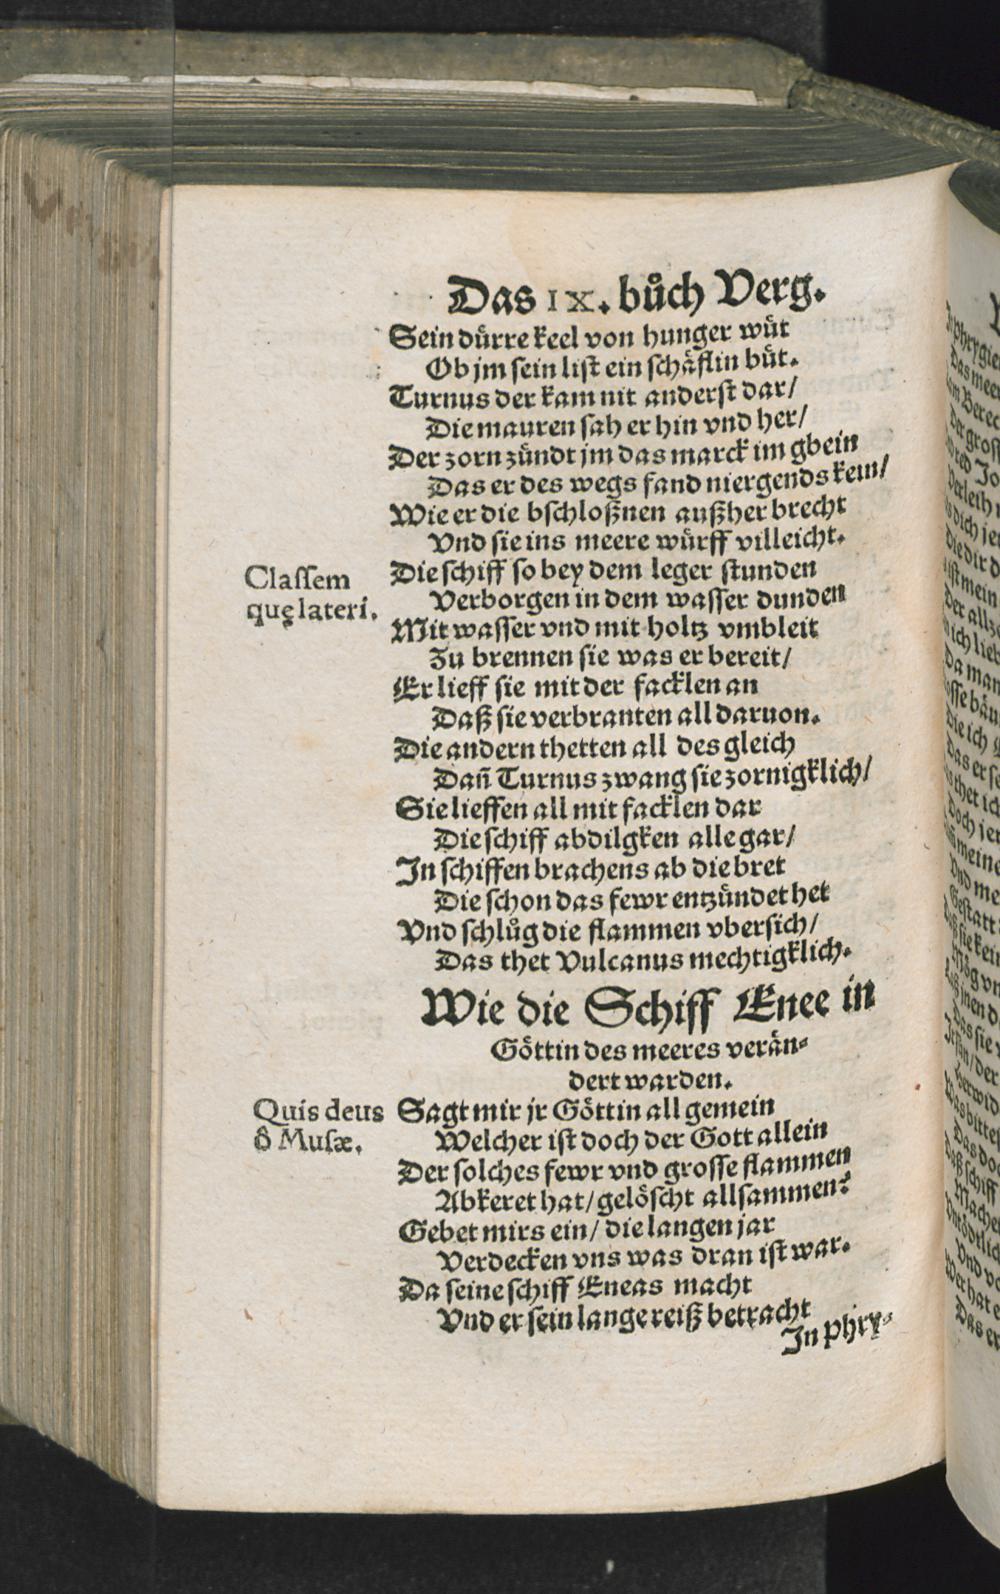 Das IX. bůch Verg.
Sein dürre keel von hunger wüt
Ob jm sein list ein schäflin büt.
Turnus der kam nit anderst dar/
Die mauren sah er hin vnd her/
Der zorn zündt jm das marck im gbein
Das er des wegs fand niergends kein/
Wie er die bschloßnen außher brecht
Vnd sie ins meere würff villeicht.
Classem
quę lateri.
Die schiff so bey dem leger stunden
Verborgen in dem wasser dunden
Mit wasser vnd mit holtz vmbleit
Zu brennen sie was er bereit/
Er lieff sie mit der facklen an
Daß sie verbranten all daruon.
Die andern thetten all des gleich
Dañ Turnus zwang sie zornigklich/
Sie lieffen all mit facklen dar
Die schiff abdilgken alle gar/
In schiffen brachens ab die bret
Die schon das fewr entzündet het
Vnd schlůg die flammen vbersich/
Das thet Vulcanus mechtigklich.
Wie die Schiff Enee in
Göttin des meeres verän-
dert warden.
Quis deus
ô Musæ.
Sagt mir jr Göttin all gemein
Welcher ist doch der Gott allein
Der solches fewr vnd grosse flammen
Abkeret hat/ gelöscht allsammen?
Gebet mirs ein/ die langen jar
Verdecken vns was dran ist war.
Da seine schiff Eneas macht
Vnd er sein lange reiß betracht
In Phry-